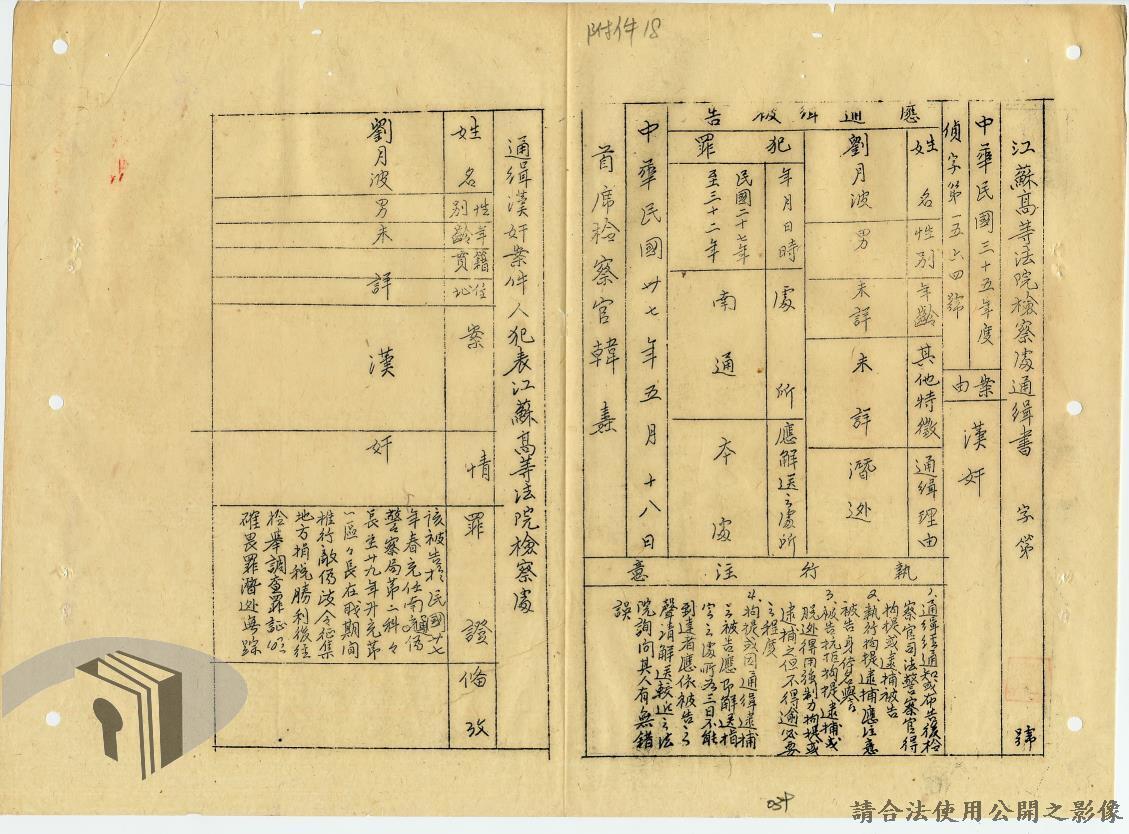 附件18
江蘇高等法院檢察處通緝書 字第 號
中華民國三十五年度
偵字第一五六四號
案由
漢奸
應通緝被告
姓名
性別
年齡
其他特徵
通緝理由
劉月波
男
未詳
未詳
潛逃
犯罪
年月日時
處所
應解送之處所
民國二十七年
至三十二年
南通
本處
中華民國卅七年五月十八日
首席檢察官韓燾
執行注意
1.通緝經通知或布告後檢
察官司法警察官得
拘提或逮捕被告
2.執行拘提逮捕應注意
被告身体名譽
3.被告抗拒拘提逮捕或
脫逃得用強制力拘提或
逮捕之但不得逾必要
之程度
4.拘提或因通緝逮捕
之被告應即解送指
定之處所如三日不能
到達者應依被告之
聲請解送較近之法
院詢問其人有無錯
誤
通緝漢奸案件人犯表江蘇高等法院檢察處
姓名
性別
年齡
籍貫
住址
案情
罪證
備攷
劉月波
男
未詳
漢奸
該被告於民國廿七
年春充任南通偽
警察局第二科科
長至廿九年升充第
一區區長在職期間
推行敵偽法令征集
地方捐稅勝利後經
檢舉調查罪証明
確畏罪潛逃無踪
034
請合法使用公開之影像